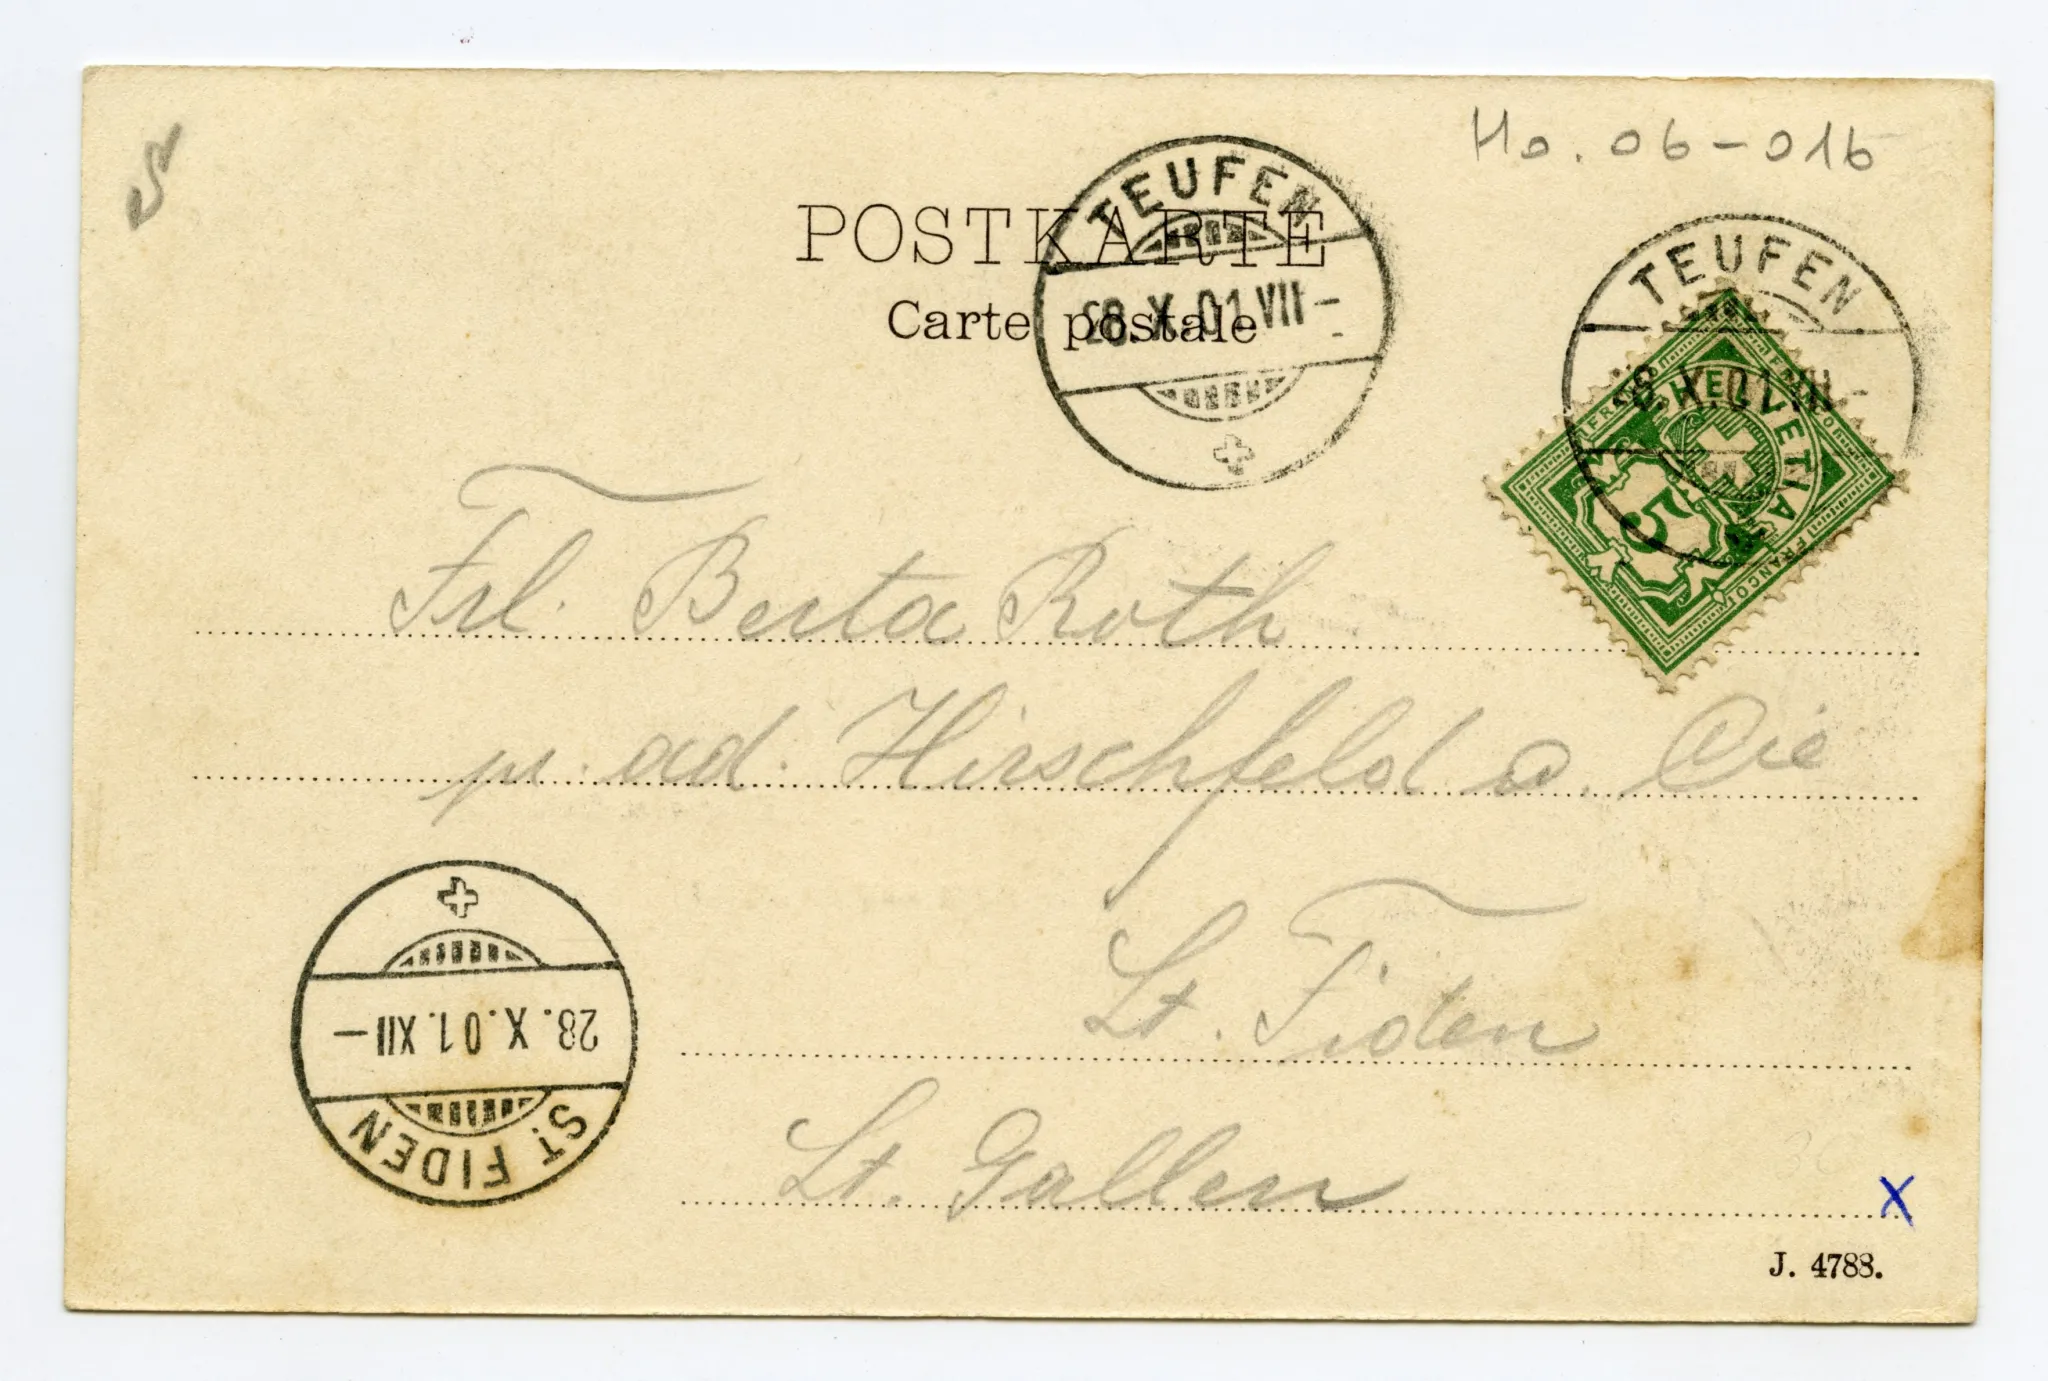 Ho. 06-016
POSTKARTE
Carte postale
TEUFEN
28.X.01.VII-
TEUFEN
28.X.01.VII-
FRANCO
HELVETIA
5
FRANCO
Frl. Berta Roth
pr. ad. Hirschfeld & Cie
St. Fiden
St. Gallen
28.X.01.XII-
ST. FIDEN
X
J. 4788.